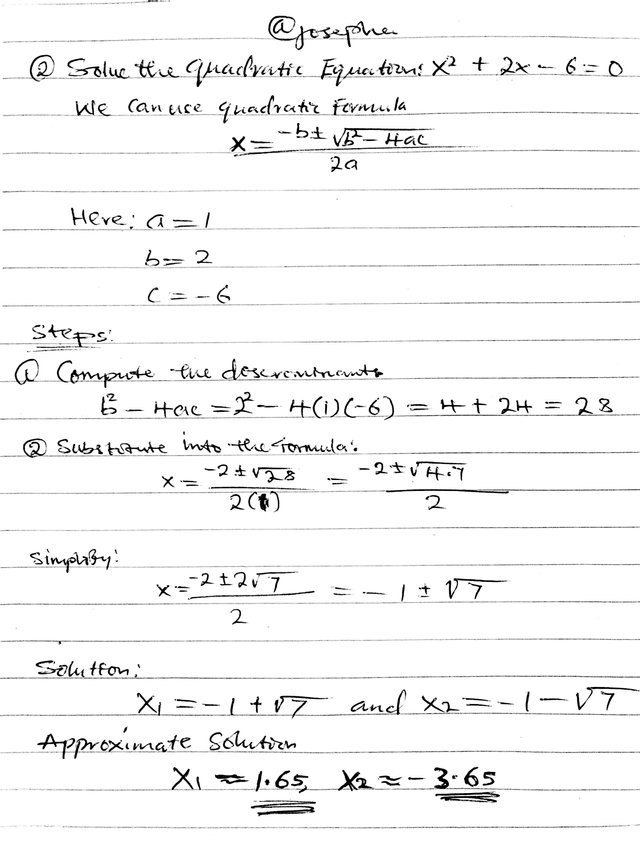 @josepha
② Solve the Quadratic Equation: x² + 2x - 6 = 0
We can use quadratic formula
x = (-b ± √(b² - 4ac)) / 2a
Here: a = 1
b = 2
c = -6
Steps:
① Compute the descreminants
b² - 4ac = 2² - 4(1)(-6) = 4 + 24 = 28
② Substitute into the formula:
x = (-2 ± √28) / 2(1) = (-2 ± √4·7) / 2
Simplify:
x = (-2 ± 2√7) / 2 = -1 ± √7
Solution:
x₁ = -1 + √7 and x₂ = -1 - √7
Approximate Solution
x₁ ≈ 1.65, x₂ ≈ -3.65